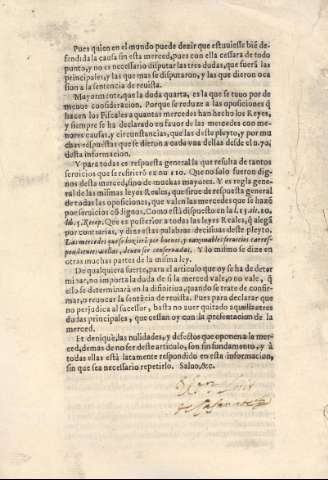 Pues quien en el mundo puede dezir que estuuiesse biẽ de-
fendida la causa sin esta merced, pues con ella cessara de todo
punto, y no es necessario disputar las tres dudas, que fuerã las
principales, y las que mas se disputaron, y las que dieron oca-
sion a la sentencia de reuista.
Mayormente, que la duda quarta, es la que se tuuo por de
menor consideracion. Porque se reduze a las oposiciones q̃
hazen los Fiscales a quantas mercedes han hecho los Reyes,
y siempre se ha declarado en fauor de las mercedes con me-
nores causas, y circunstancias, que las deste pleyto, y por mu
chas respuestas que se dieron a cada vna dellas desde el n. 70.
desta informacion.
Y para todas es respuesta general la que resulta de tantos
seruicios que se refirierõ en 110. Que no solo fueron dig-
nos desta merced, sino de muchas mayores. Y es regla gene-
ral de las mismas leyes Reales, que sirue de respuesta general
de todas las oposiciones, que valen las mercedes que se hazẽ
por seruicios cõdignos. Como està dispuesto en la l. 15. tit. 10.
lib. 5. Recop. Que es posterior a todas las leyes Reales, q̃ alegã
por contrarias, y dize estas palabras decisiuas deste pleyto.
Las mercedes que se hizierẽ por buenos, y razonables seruicios corres-
pondientes a ellas, deuen ser conseruadas. Y lo mismo se dize en
otras muchas partes de la misma ley.
De qualquiera suerte, para el articulo que oy se ha de deter
minar, no importa la duda de si la merced vale, o no vale, q̃
esso se determinarà en la difinitiua, quando se trate de confir-
mar, o reuocar la sentẽcia de reuista. Pues para declarar que
no perjudica al sucessor, basta no auer quitado aquellas tres
dudas principales, que cessan oy con la presentacion de la
merced.
Et denique, las nulidades, y defectos que oponen a la mer-
ced, demas de no ser deste articulo, son sin fundamento, y à
todas ellas està latamente respondido en esta informacion,
sin que sea necessario repetirlo. Saluo, &c.